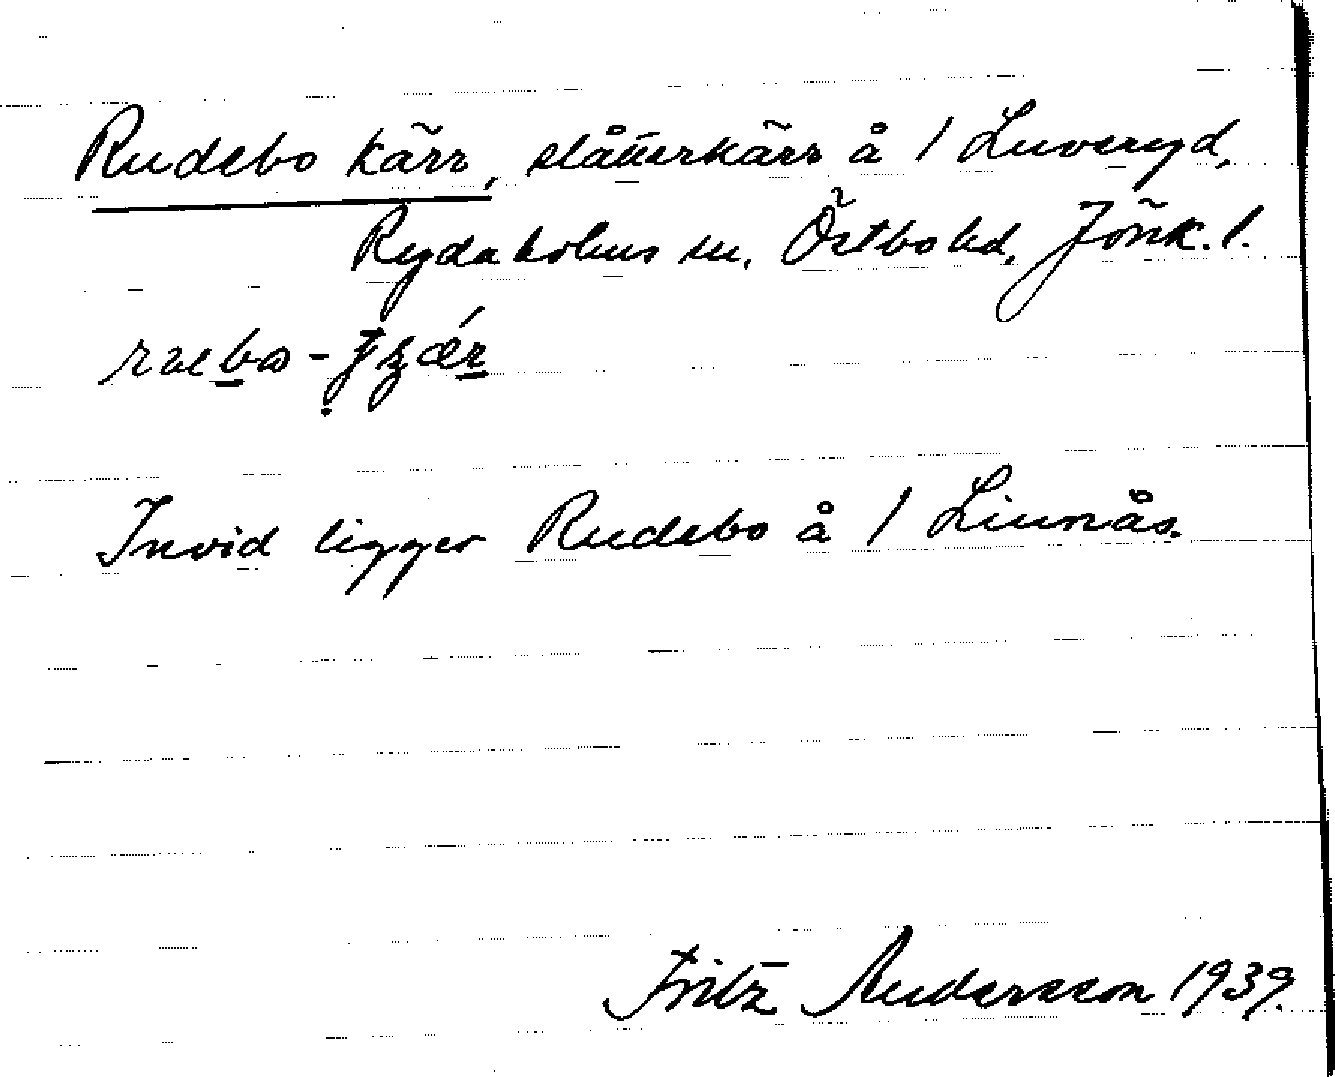 Rudebo kärr, slåtterkärr å 1 Luveryd,
Rydaholms sn, Östbo hd, Jönk. l.
Invid ligger Rudebo å 1 Linnås.
Fritz Andersson 1939.